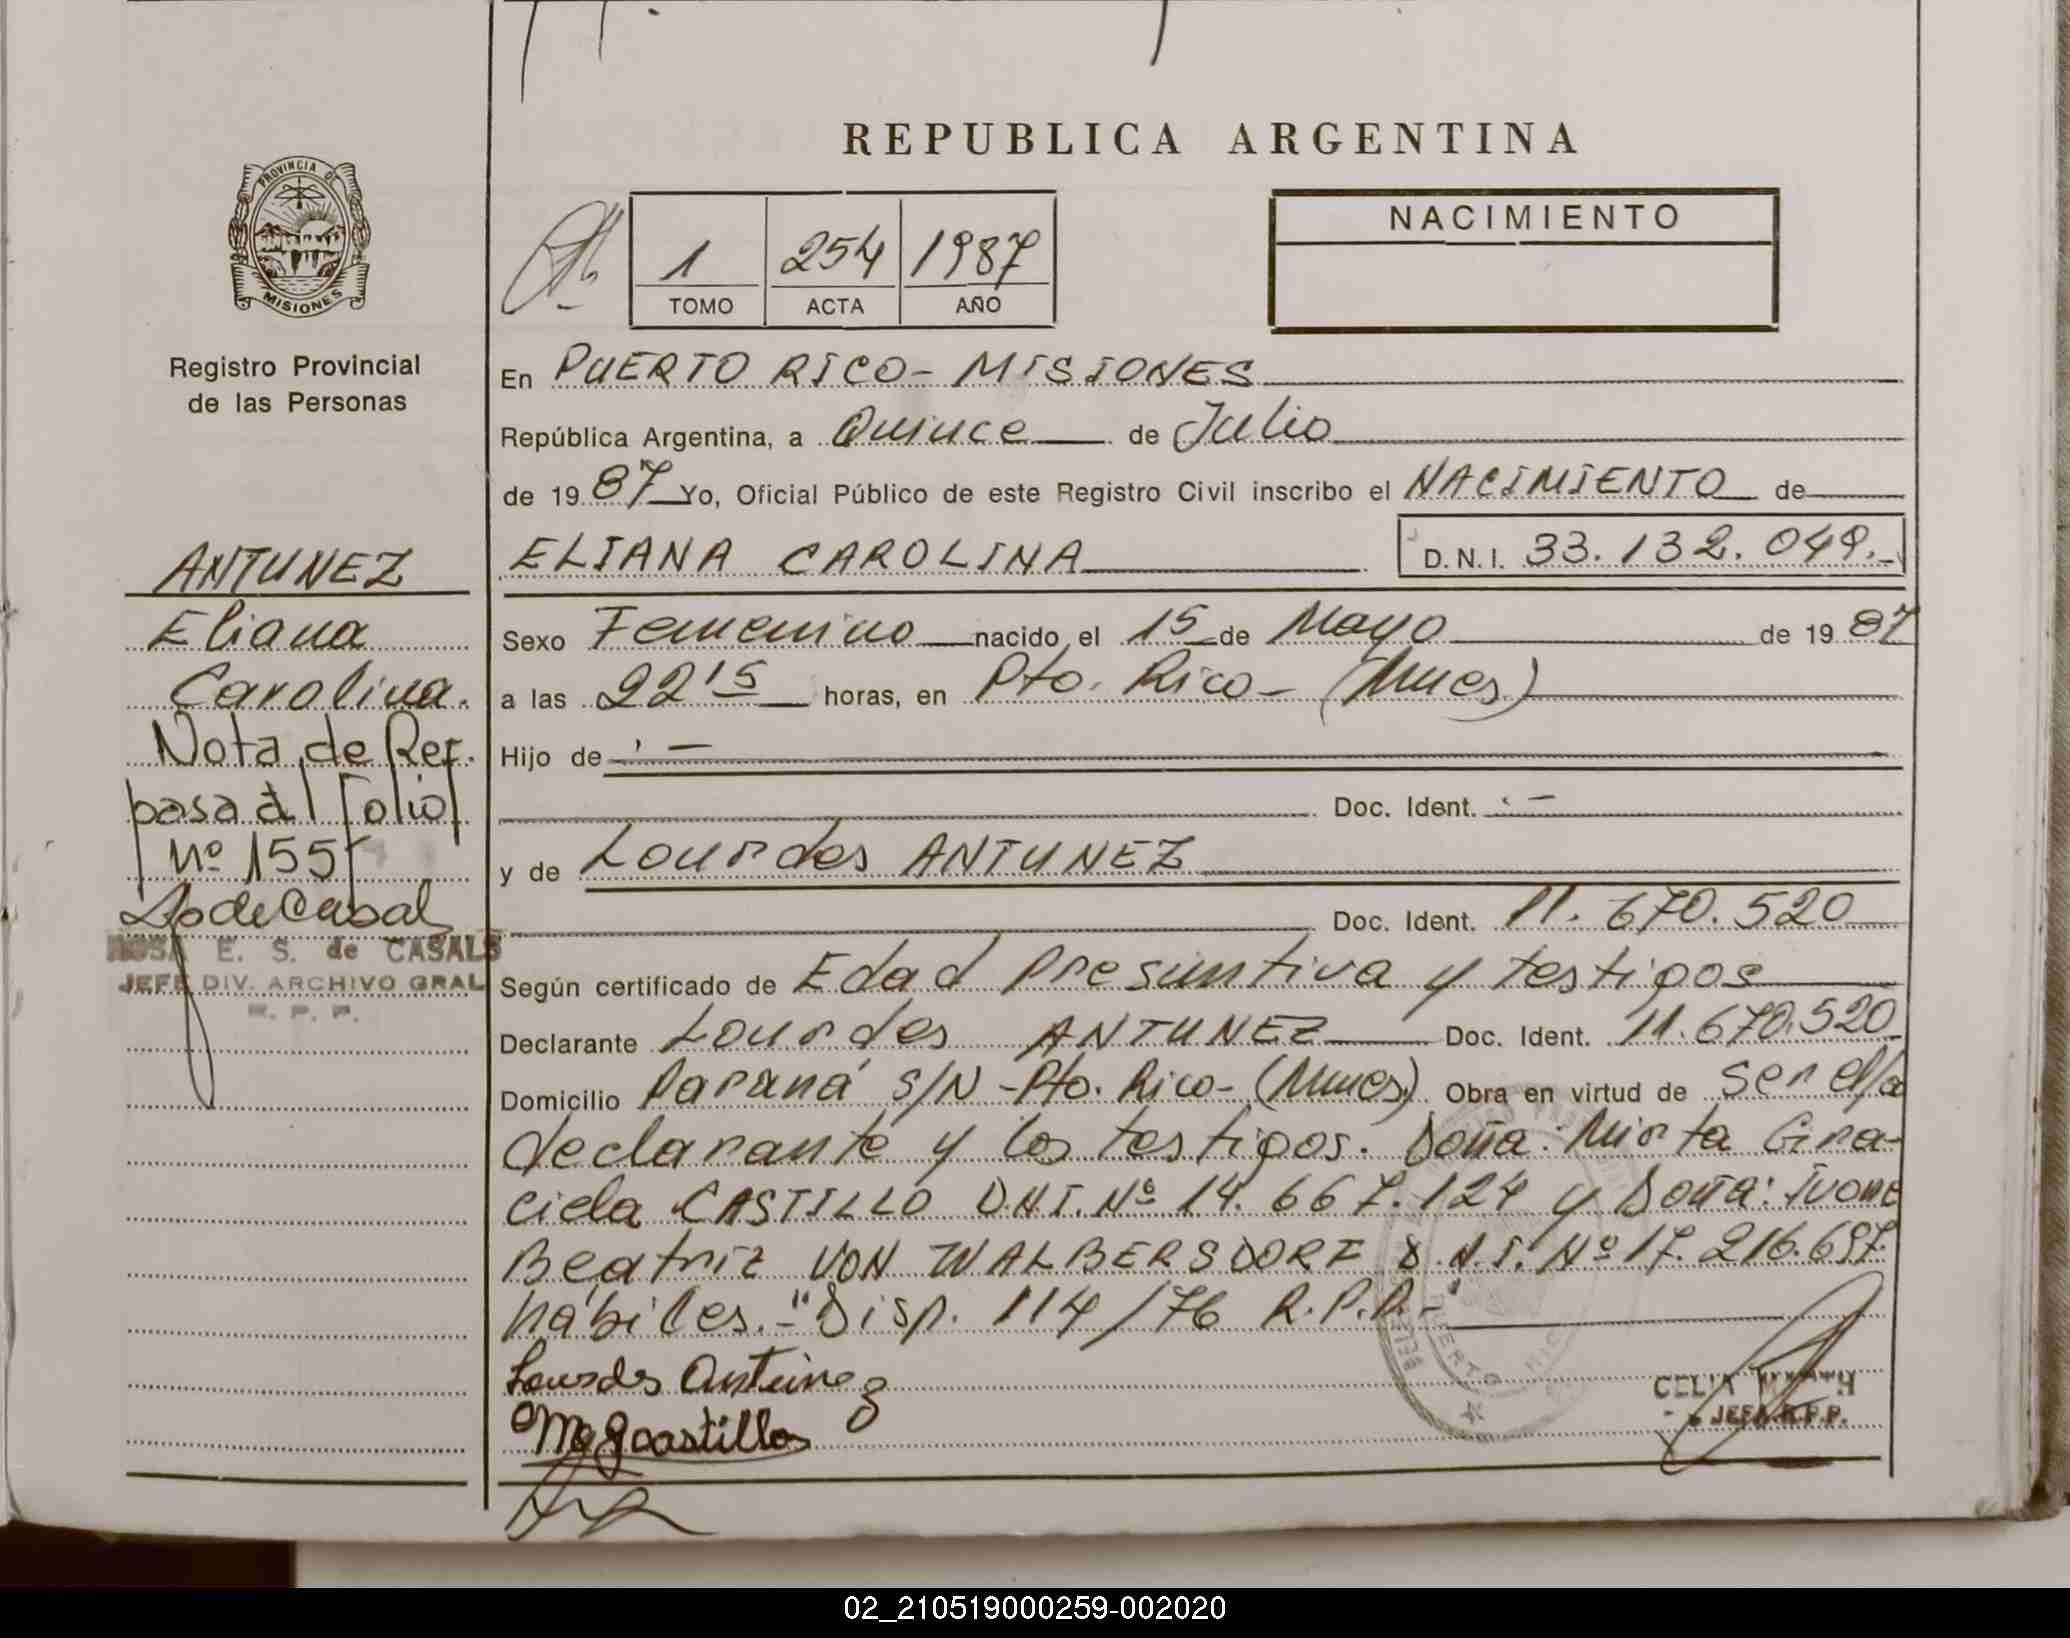 REPUBLICA ARGENTINA
PROVINCIA DE
MISIONES
Registro Provincial
de las Personas
1 254 1987
TOMO ACTA AÑO
NACIMIENTO
En PUERTO RICO - MISIONES
República Argentina, a Quince de Julio
de 1987 Yo, Oficial Público de este Registro Civil inscribo el NACIMIENTO de
ELIANA CAROLINA D.N.I. 33.132.049.-
Sexo Femenino nacido el 15 de Mayo de 1987
a las 22 15 horas, en Pto. Rico - (Mnes)
Hijo de .-
Doc. Ident. .-
y de Lourdes ANTUNEZ
Doc. Ident. 11.670.520
Según certificado de Edad Presuntiva y testigos
Declarante Lourdes ANTUNEZ Doc. Ident. 11.670.520
Domicilio Paraná S/N - Pto. Rico - (Mnes). Obra en virtud de ser el/a
declarante y los testigos. Doña: Mirta Gra-
ciela CASTILLO D.N.I. Nº 14.667.124 y Doña: Ivone
Beatriz VON WALBERSDORF D.N.I. Nº 17.216.697.
hábiles.- "Disp. 114/76 R.P.P.-"
Lourdes Antunez
Mgcastillo
CELIA
JEFA R.P.P.
ANTUNEZ
Eliana
Carolina.
Nota de Ref.
pasa al Folio
Nº 155
ROSA E. S. de CASALS
JEFE DIV. ARCHIVO GRAL
R. P. P.
02_210519000259-002020